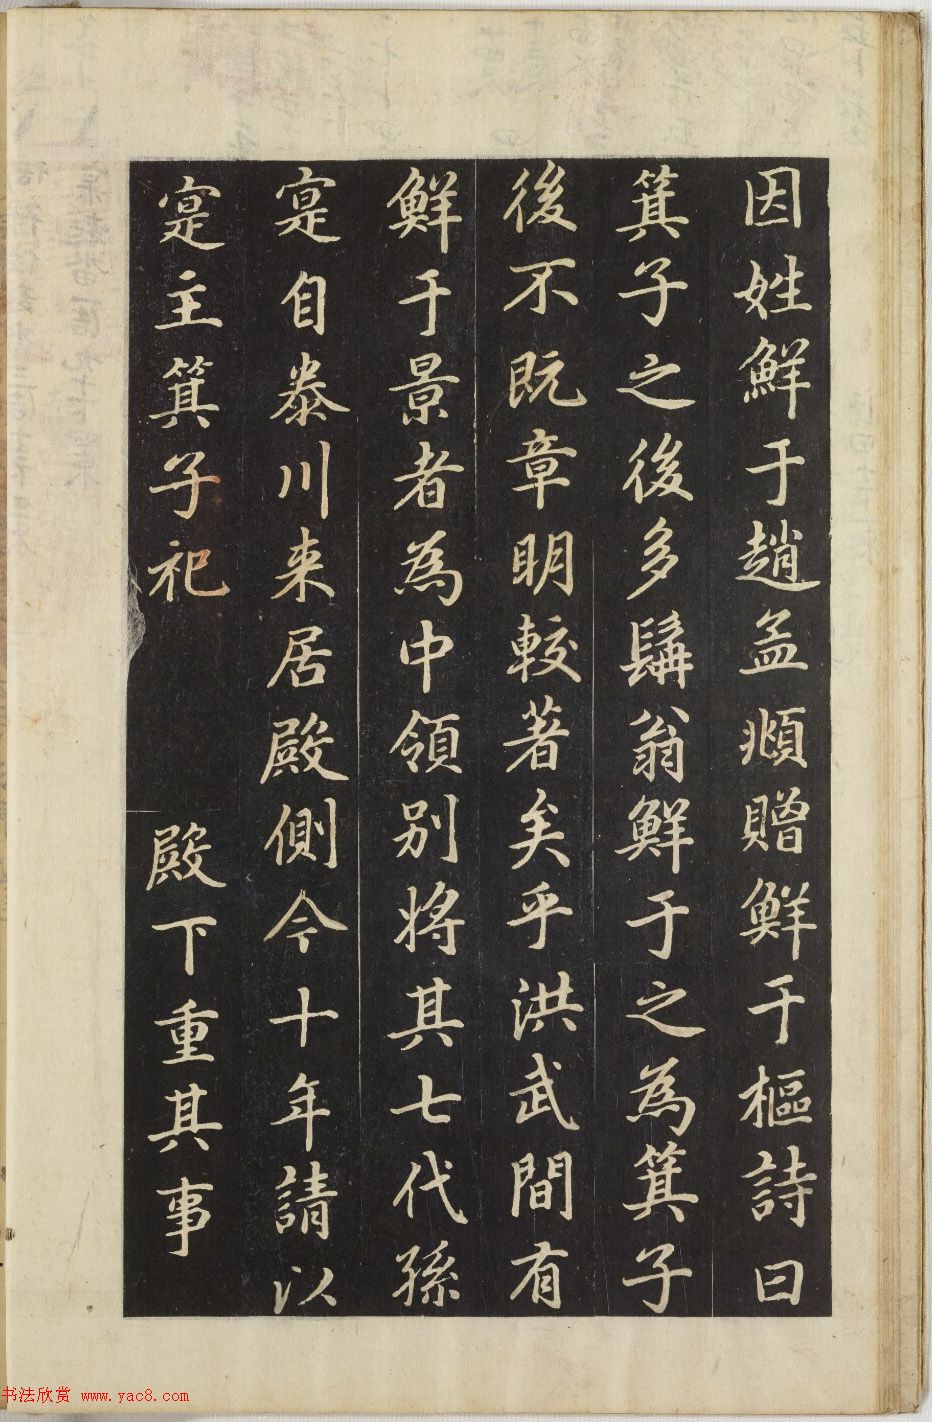 因姓鮮于趙孟頫贈鮮于樞詩曰
箕子之後多髯翁鮮于之為箕子
後不既章明較著矣乎洪武間有
鮮于景者為中領別將其七代孫
寔自泰川来居殿側今十年請以
寔主箕子祀 殿下重其事
书法欣赏 www.yac8.com